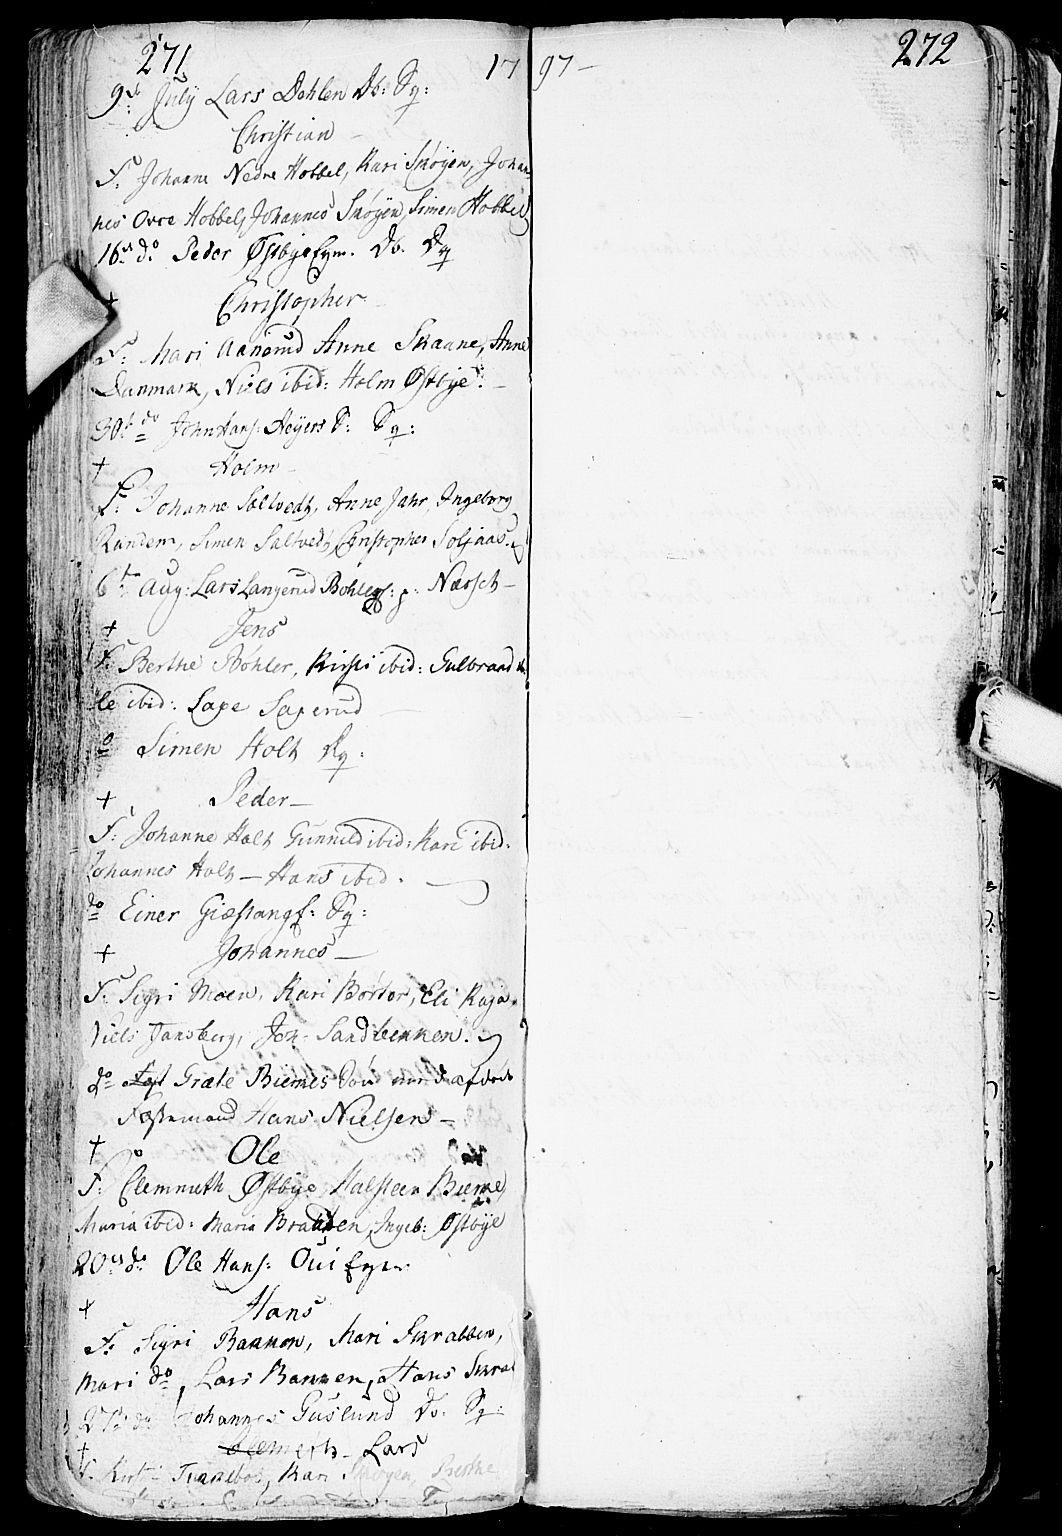 271
17 97 —
272
9de July Lars Dahlen Db: Sq:
Christian —
F: Johanne Nedre Hobbel, Kari Skøyen, Johan-
nes Ovre Hobbel, Johannes Skøyen, Simen Hobbel
16de do Peder Østbye Eyer. Db. Dq
+ Christopher —
F: Mari Aanerud Anne Skaane, Anne
Danmark, Niels ibid: Holm Østbye. —
30te do John Hans: Heyers Sq:
+ Holm —
F: Johanne Saltvedt, Anne Jahr, Ingeborg
Randem, Simen Saltvedt, Christopher Soljaas.
6te Aug: Lars Langerud Bøhler Næsset —
+ Jens
F: Berthe Bøhler, Kirsti ibid: Gulbrand
ibid: Saxe Saxerud —
do Simen Holt Sq:
+ Peder —
F: Johanne Holt Gunnild ibid: Kari ibid:
Johannes Holt — Hans ibid.
do Einer Giæstang Sq:
+ Johannes —
F: Sigri Moen, Kari Børtor, Eli Kaja,
Niels Tansberg, Joh: Sandbekken.
do Græte Biernes Søn med afdøde
Fæstemand Hans Nielsen —
+ Ole
F: Clemmeth Østbye, Halsteen Bierne
Maria ibid: Maria Braaten, Ingeb: Østbye
20de do Ole Hans: Oui Eyer
+ Hans
F: Sigri Bakken, Mari Skrabben,
Mari do, Lars Bakken, Hans Skra
27de do Johannes Guslund Db: Sq:
+ Clemeth — Lars
F: Kirsti Tukkebøl, Kari Skøyen, Berthe